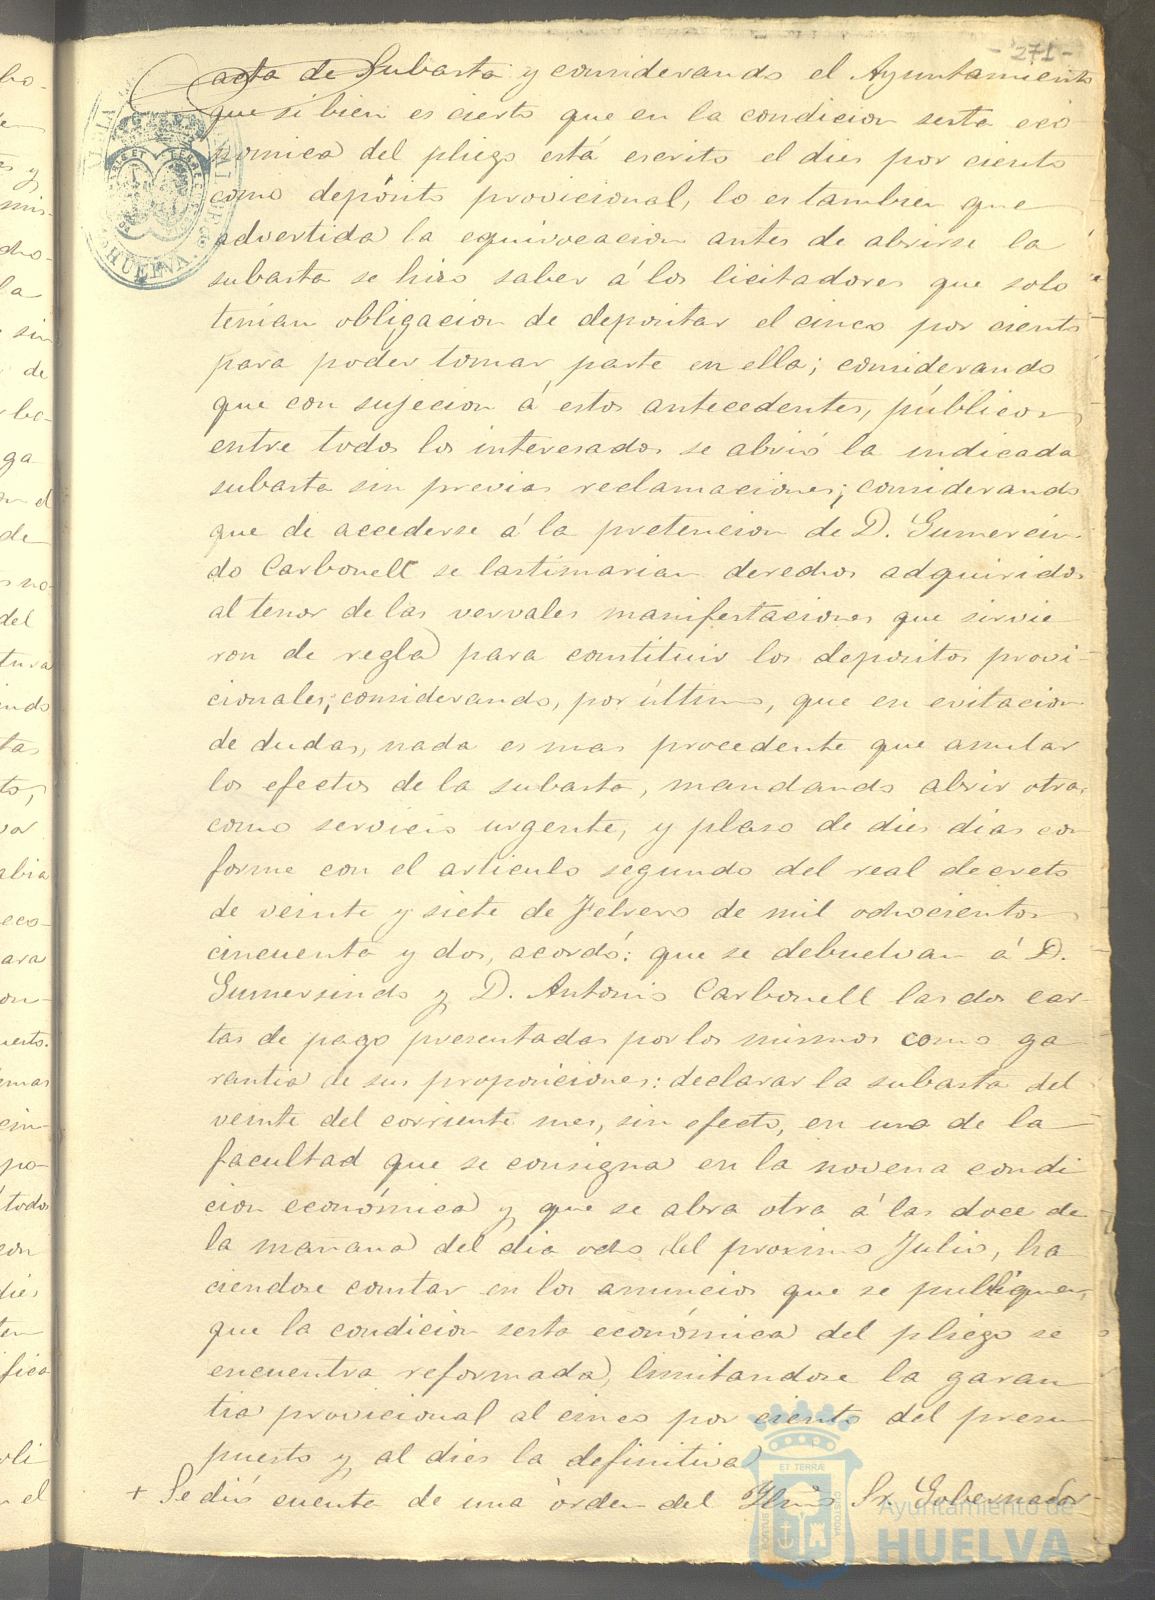 - 271 -
acta de Subasta y considerando el Ayuntamiento
que si bien es cierto que en la condicion sesta eco
nomica del pliego está escrito el dies por ciento
como depósito provicional, lo es tambien que
advertida la equivocacion antes de abrirse la
subasta se hiso saber á los licitadores que solo
tenian obligacion de depositar el cinco por ciento
para poder tomar parte en ella; considerando
que con sujecion á estos antecedentes, públicos
entre todos los interesados se abrió la indicada
subasta sin previas reclamaciones; considerando
que de accederse á la pretencion de D. Gumersin
do Carbonell se lastimarian derechos adquiridos
al tenor de las vervales manifestaciones que sirvie
ron de regla para constituir los depositos provi-
cionales; considerando, por último, que en evitacion
de dudas, nada es mas procedente que anular
los efectos de la subasta, mandando abrir otra,
como servicio urgente, y plaso de dies dias con
forme con el articulo segundo del real decreto
de veinte y siete de Febrero de mil ochocientos
cincuenta y dos, acordó: que se debuelvan á D.
Gumersindo y D. Antonio Carbonell las dos car-
tas de pago presentadas por los mismos como ga
rantia de sus proposiciones: declarar la subasta del
veinte del corriente mes, sin efecto, en uso de la
facultad que se consigna en la novena condi
cion económica y que se abra otra á las doce de
la mañana del dia ocho del proximo Julio, ha
ciendose constar en los anuncios que se publiquen,
que la condicion sesta económica del pliego se
encuentra reformada, limitandose la garan
tia provicional al cinco por ciento del presu
puesto y al dies la definitiva
+ Se dió cuenta de una òrden del Ylmo Sr. Gobernador
HUELVA
Ayuntamiento de
HUELVA